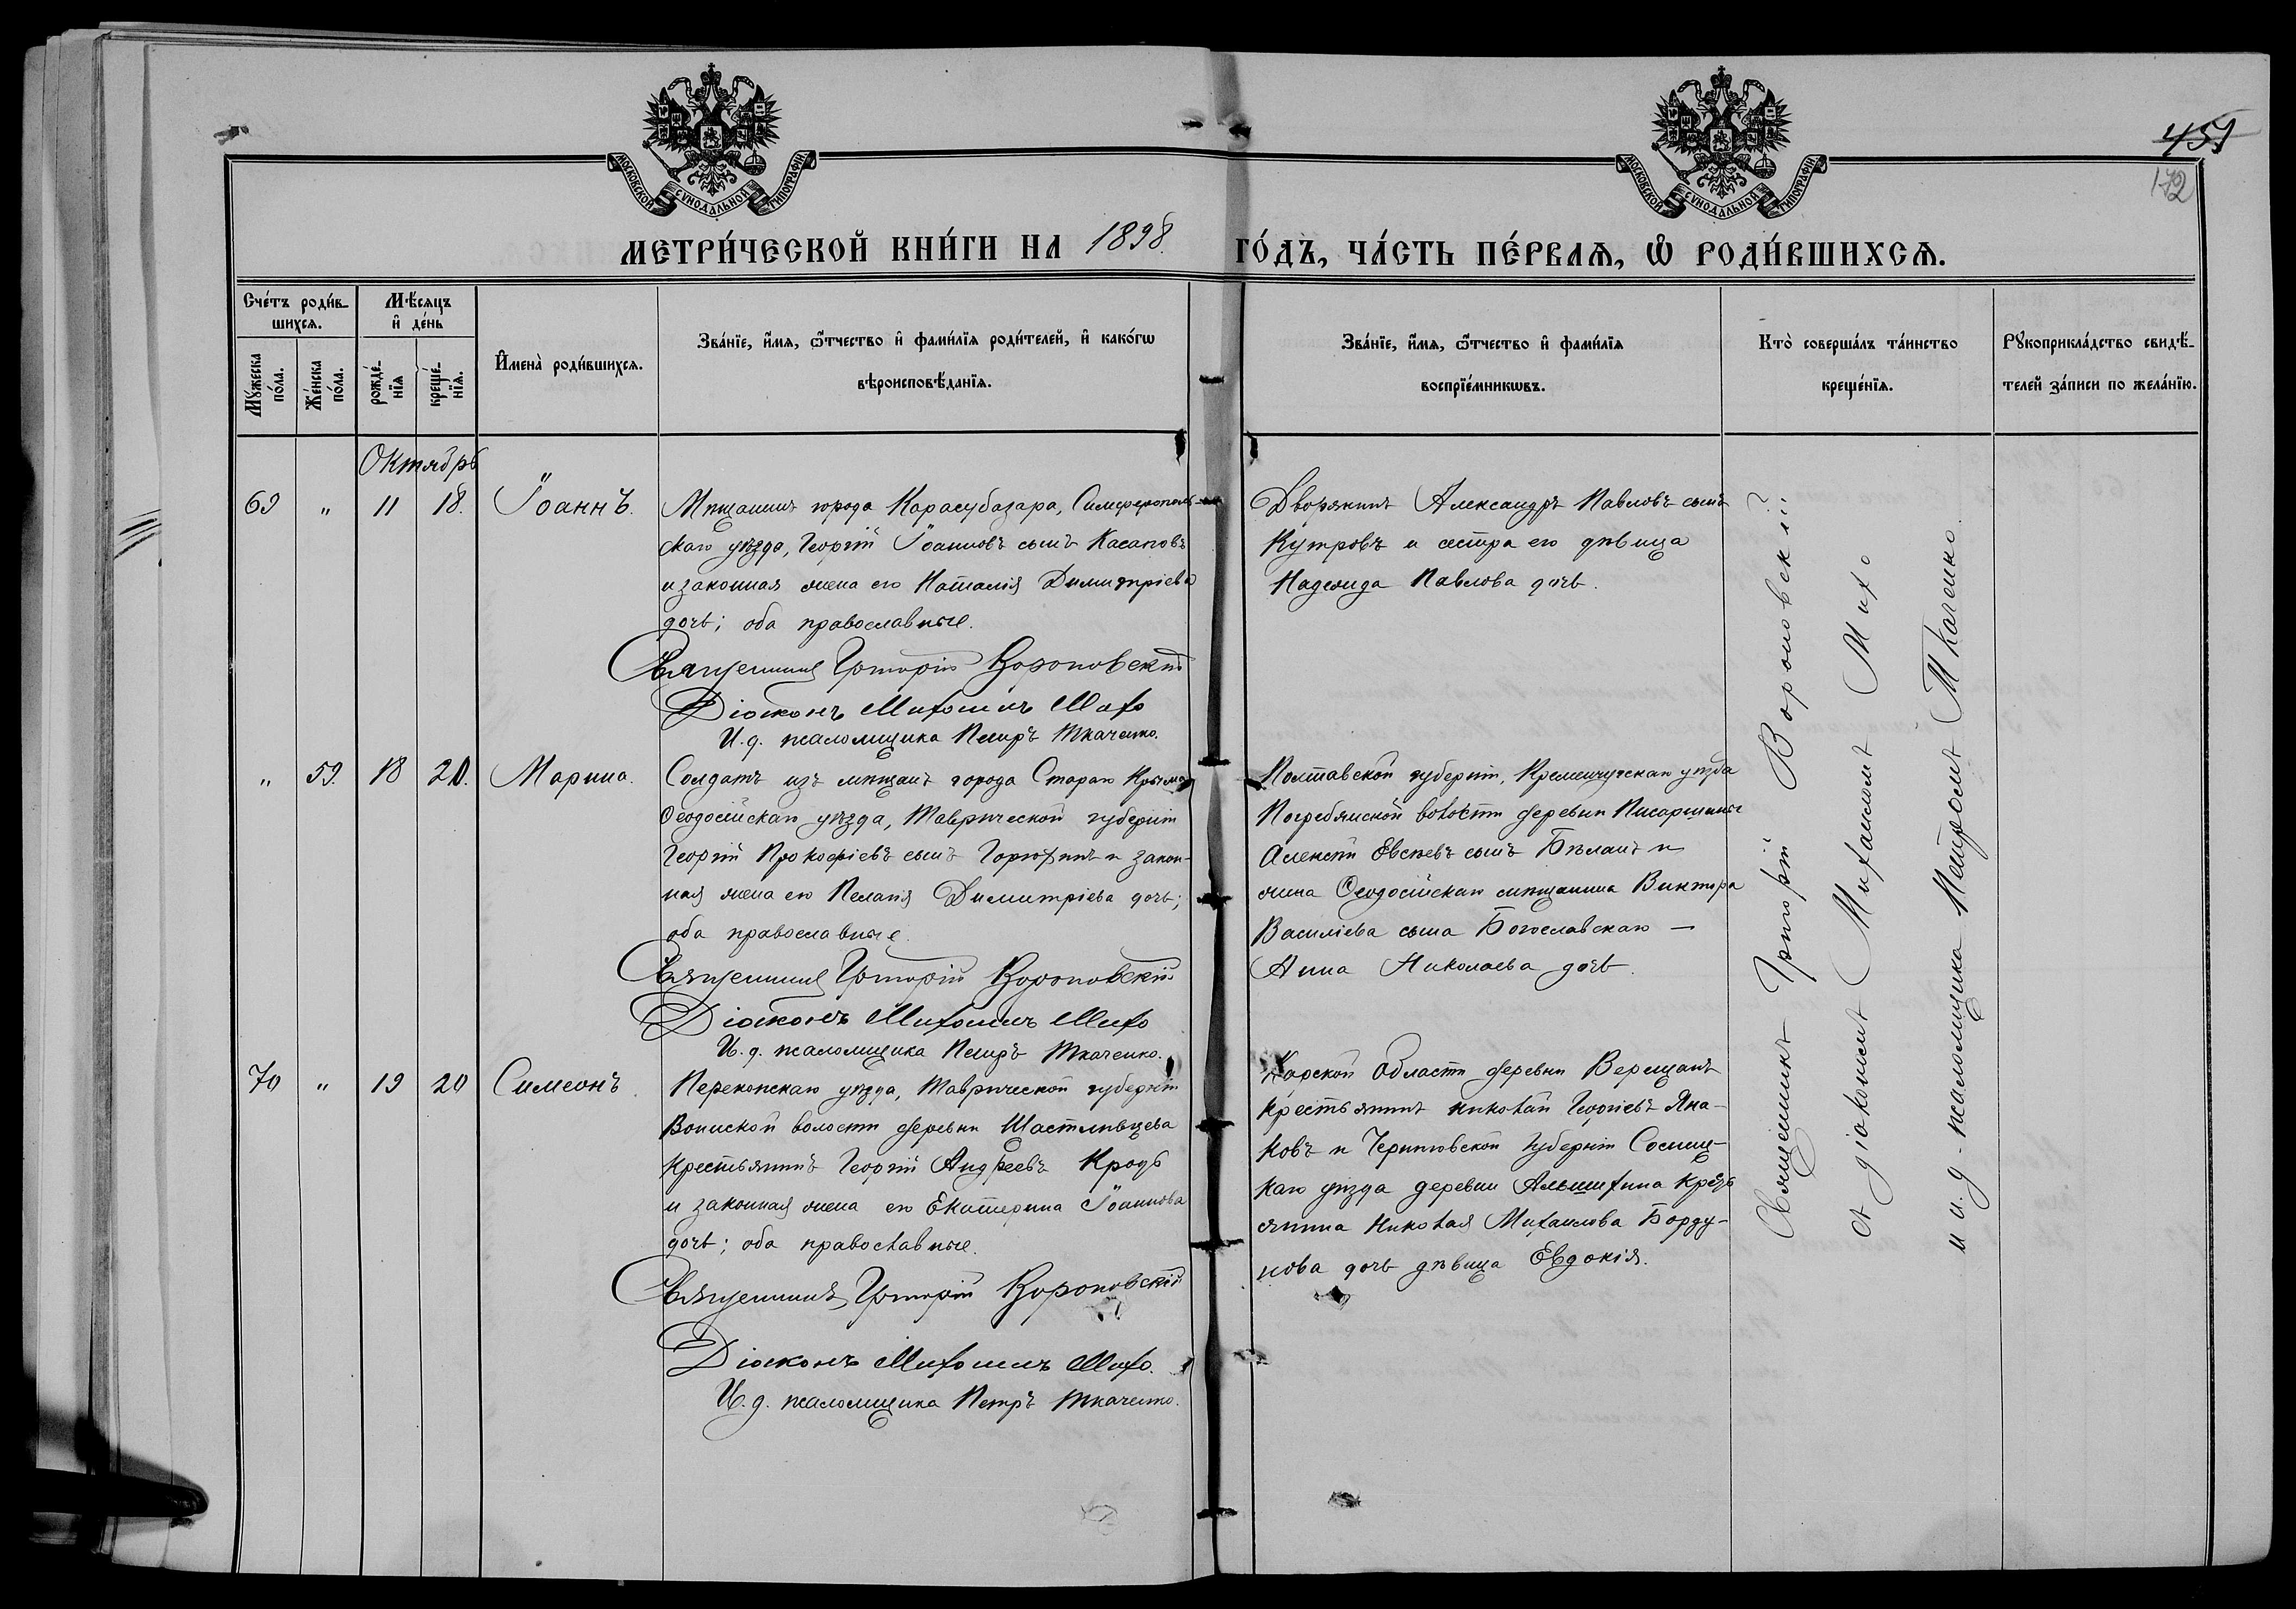 451
172
МОСКОВСКОЙ СѴНОДАЛЬНОЙ ТИПОГРАФІИ
МОСКОВСКОЙ СѴНОДАЛЬНОЙ ТИПОГРАФІИ
МЕТРИ́ЧЕСКОЙ КНИ́ГИ НА 1898. ГО́ДЪ, ЧА́СТЬ ПЕ́РВАѦ, Ѽ РОДИ́ВШИХСѦ.
Сче́тъ роди́в-
шихсѧ.
Мѣ́сѧцъ
и҆ де́нь
Мꙋ́жеска
по́ла.
Же́нска
по́ла.
рожде́-
нїѧ
креще́-
нїѧ.
И҆мена̀ роди́вшихсѧ.
Зва́нїе, и҆́мѧ, ѻ҆́тчество и҆ фами́лїѧ роди́телей, и҆ како́гѡ
вѣроисповѣ́данїѧ.
Зва́нїе, и҆́мѧ, ѻ҆́тчество и҆ фами́лїѧ
воспрїе́мникѡвъ.
Кто̀ соверша́лъ та́инство
креще́нїѧ.
Рꙋкоприкла́дство свидѣ́-
телей за́писи по жела́нїю.
Октябрь
69 " 11 18. Іоаннъ.
Мѣщанинъ города Карасубазара, Симферополь-
скаго уѣзда, Георгій Іоанновъ сынъ Касановъ
и законная жена его Наталія Димитріева
дочь; оба православные.
Священникъ Григорій Вороновскій
Діаконъ Михаилъ Михо
И. д. псаломщика Петръ Ткаченко.
Дворянинъ Александръ Павловъ сынъ
Кутровъ и сестра его дѣвица
Надежда Павлова дочь.
" 59. 18 20. Марина.
Солдатъ изъ мѣщанъ города Стараго Крыма
Ѳеодосійскаго уѣзда, Таврической губерніи
Георгій Прокофіевъ сынъ Горюхинъ и закон-
ная жена его Пелагія Димитріева дочь;
оба православные.
Священникъ Григорій Вороновскій
Діаконъ Михаилъ Михо
И. д. псаломщика Петръ Ткаченко.
Полтавской губерніи, Кременчугскаго уѣзда
Погребянской волости деревни
Алексѣй Евсѣевъ сынъ Бѣланъ и
жена Ѳеодосійскаго мѣщанина Виктора
Василіева сына Богославскаго —
Анна Николаева дочь.
70 " 19 20 Симеонъ.
Перекопскаго уѣзда, Таврической губерніи
Воинской волости деревни Шастливцева
крестьянинъ Георгій Андреевъ Кродь
и законная жена его Екатерина Іоаннова
дочь; оба православные.
Священникъ Григорій Вороновскій
Діаконъ Михаилъ Михо.
И. д. псаломщика Петръ Ткаченко.
Карской области деревни Верещанъ
крестьянинъ Николай Георгіевъ Яна-
ковъ и Черниговской губерніи Сосниц-
каго уѣзда деревни кресть
янина Николая Михаилова Борду-
нова дочь дѣвица Евдокія.
Священникъ Григорій Вороновскій
съ діакономъ Михаиломъ Михо
и и. д. псаломщика Петромъ Ткаченко.